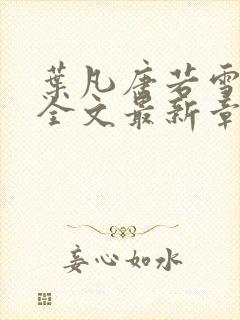 葉凡唐若雪
全文最新章
妾心如水